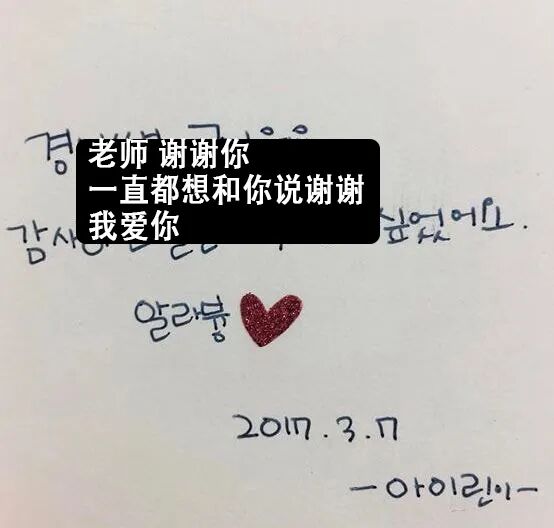 老师 谢谢你
一直都想和你说谢谢
我爱你
싶었어요.
알라븅
2017.3.7
-아이린이-